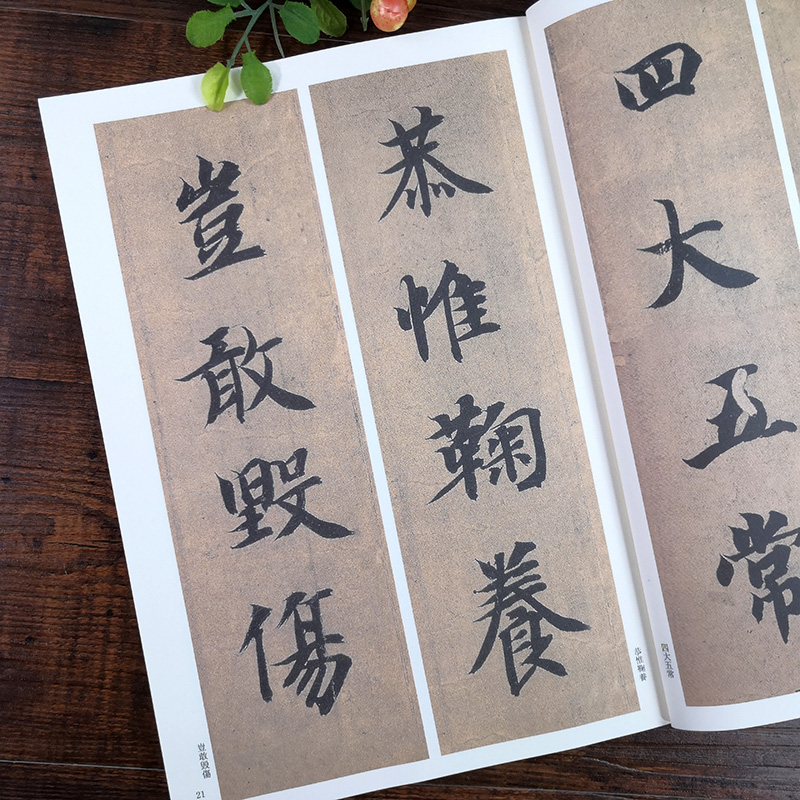 四大五常
恭惟鞠養
豈敢毀傷
四大五常
恭惟鞠養
豈敢毁傷
21